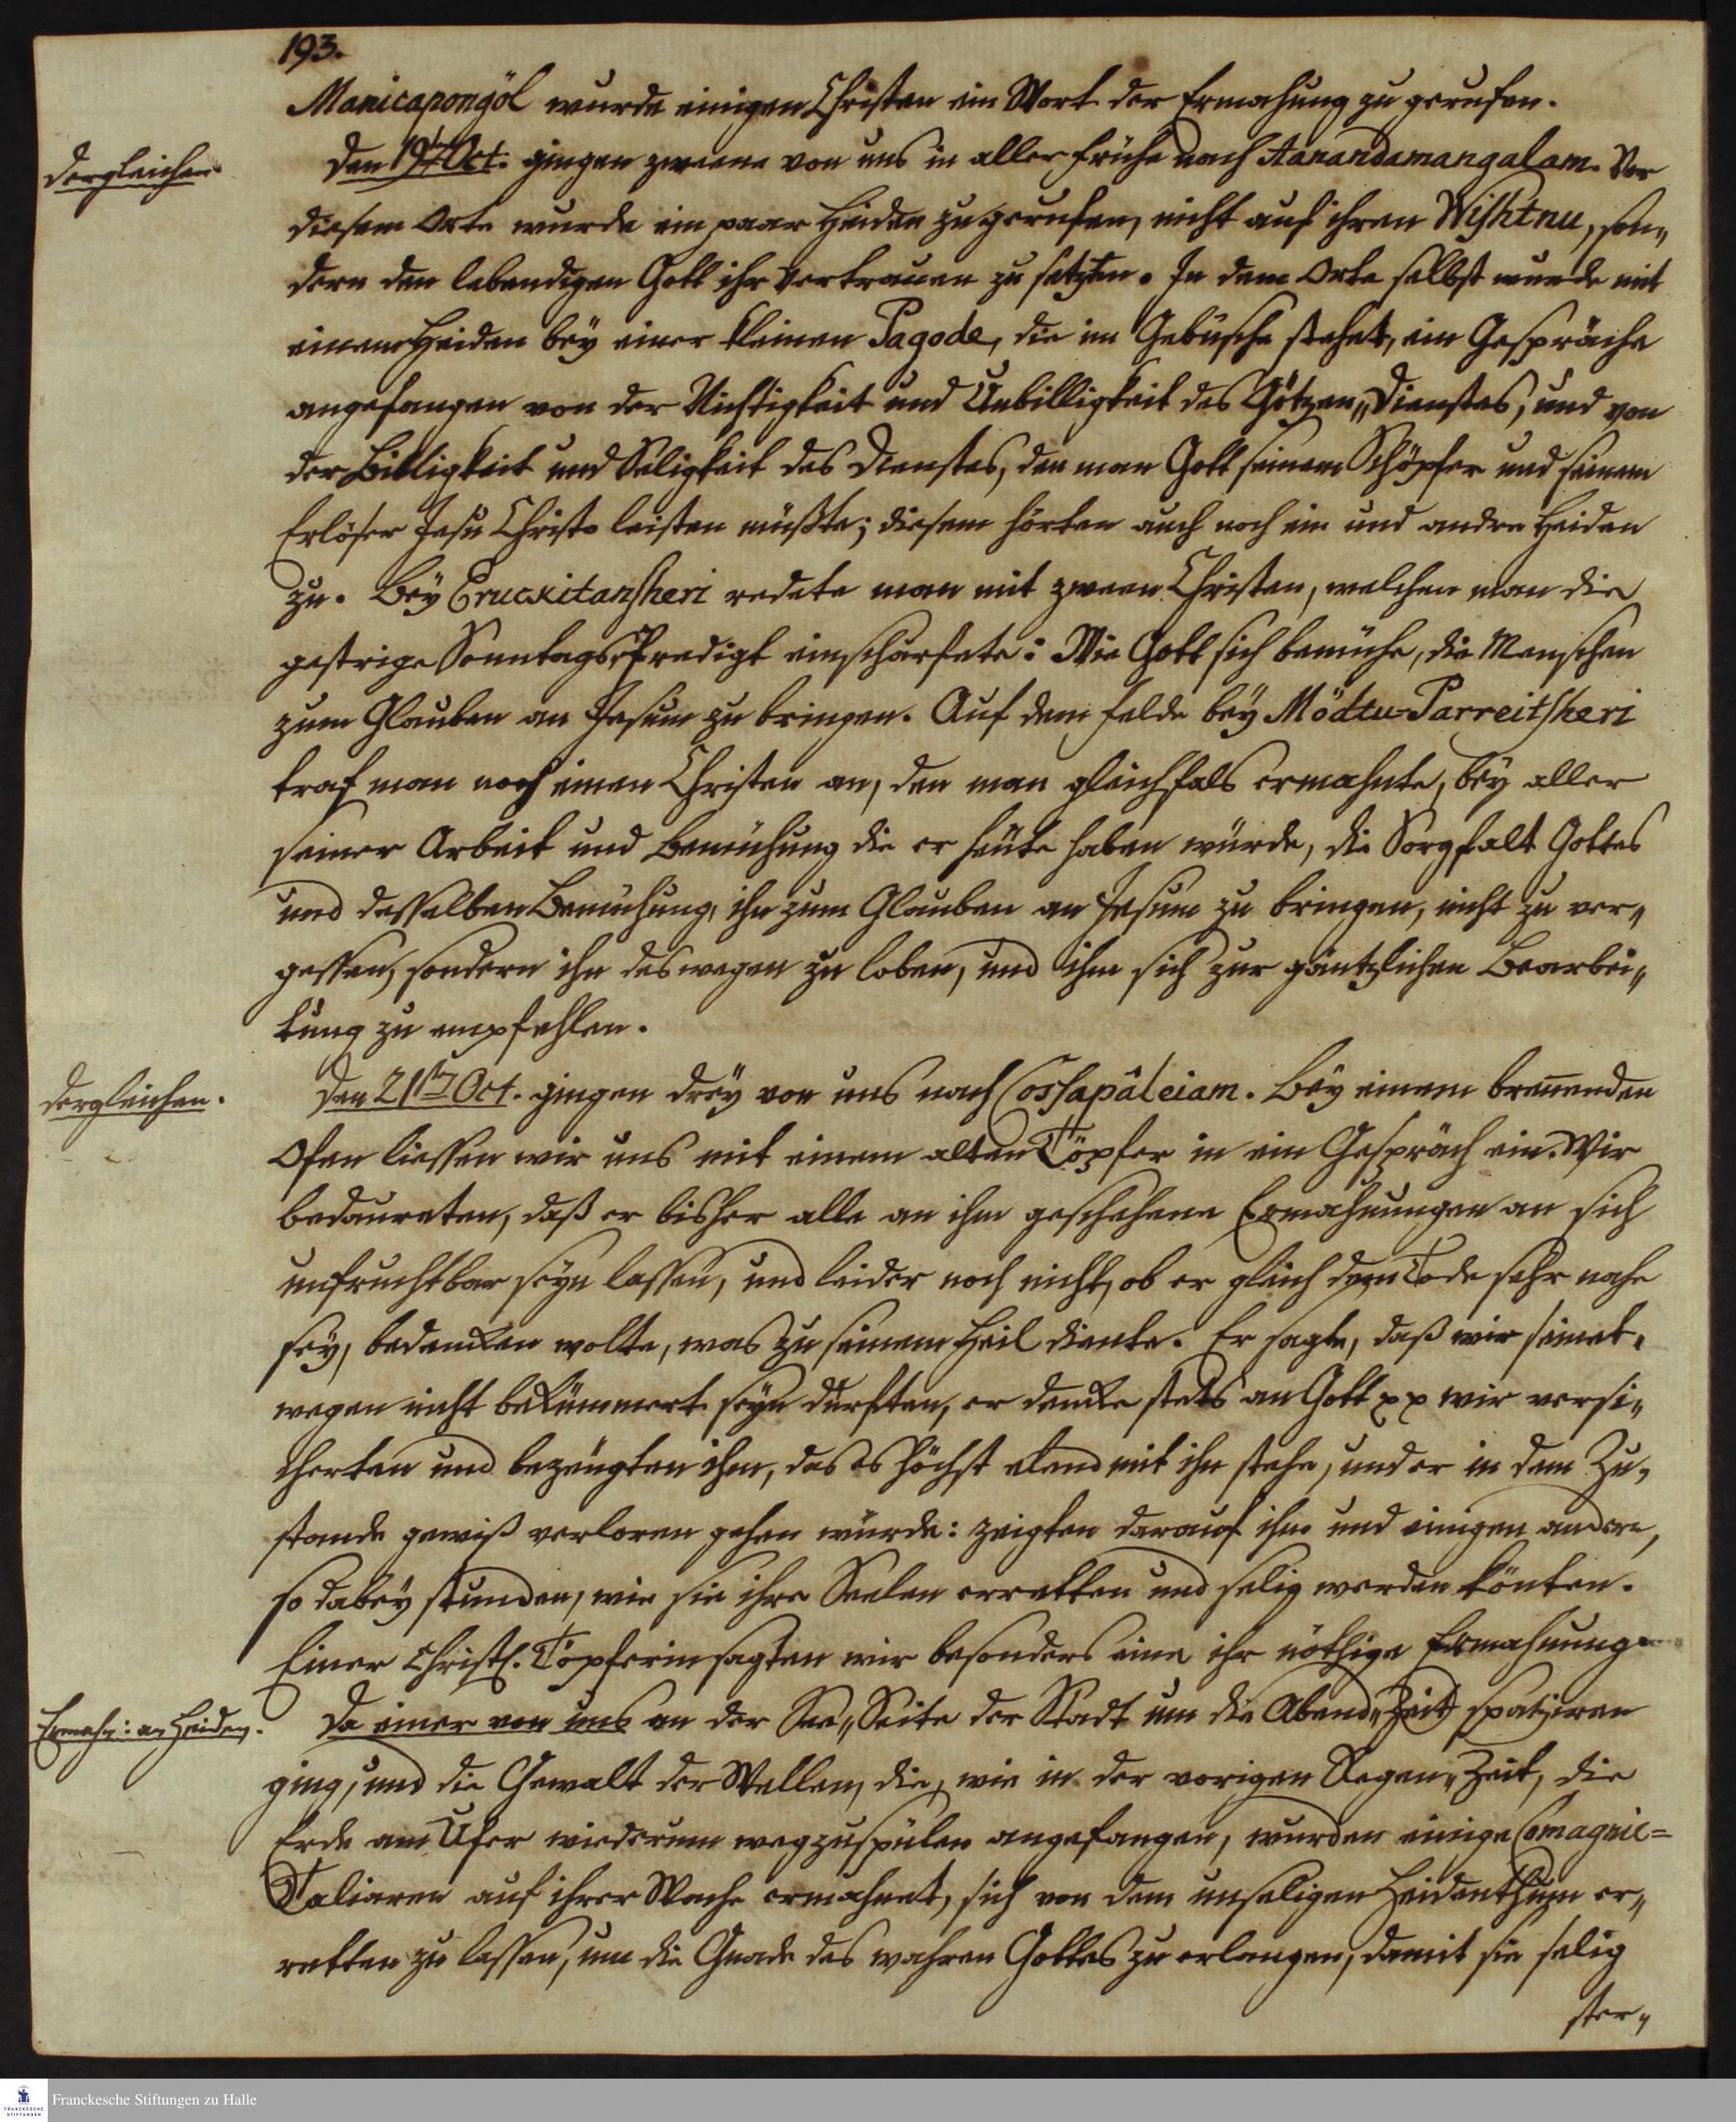 193.
Manicapongöl wurde einigen Christen ein Wort der Ermahung zu gerufen.
dergleichen
den 19ten Oct. gingen zweene von uns in aller frühe nach Aanandamangalam. Vor
diesem Orte wurde ein paar Heiden zu gerufen, nicht auf ihren Wishtnu, son„
dern den lebendigen Gott ihr Vertrauen zu setzten. In dem Orte selbst wurde mit
einem Heiden bey einer kleinen Pagode, die im Gebüsche stehet, ein Gespräche
angefangen von der Nichtigkeit und Unbilligkeit des Götzen„Dienstes, und von
der Billigkeit und Seligkeit des Dienstes, den man Gott seinem Schöpfer und seinem
Erlöser Jesu Christo leisten müßte; diesem hörten auch noch ein und andre Heiden
zu. Bey Eruckitansheri redete man mit zween Christen, welchen man die
gestrige Sonntags„Predigt einschärfete: Wie Gott sich bemühe, die Menschen
zum Glauben an Jesum zu bringen. Auf dem felde bey Mödtu-Parreitsheri
traf man noch einen Christen an, den man gleichfals ermahnte, bey aller
seiner Arbeit und Bemühung die er heute haben würde, die Sorgfalt Gottes
und desselben Bemühung, ihn zum Glauben an Jesum zu bringen, nicht zu ver„
gessen, sondern ihn deswegen zu loben, und ihm sich zur gäntzlichen Bearbei„
tung zu empfehlen.
dergleichen.
den 21ten Oct. gingen drey von uns nach Cossapâleiam. Bey einem brenenden
Ofen liessen wir uns mit einem alten Töpfer in ein Gespräch ein. Wir
bedaureten, daß er bisher alle an ihm geschehene Ermahnungen an sich
unfruchtbar seyn lassen, und leider noch nicht, ob er gleich dem Tode sehr nahe
sey, bedencken wolte, was zu seinem Heil diente. Er sagte, daß wir seinet„
wegen nicht bekümmert seyn dürften, er dencke stets an Gott xx wir versi„
cherten und bezeugten ihm, das es höchst elend mit ihm stehe, und er in dem Zu„
stande gewiß verloren gehen würde: zeigten darauf ihm und einigen andern,
so dabey stunden, wie sie ihre Seelen erretten und selig werden könten.
Einer Christl. Töpferin sagten wir besonders eine ihr nöthige Ermahnung.
Ermahn: an Heiden.
Da einer von uns an der See„Seite der Stadt um die Abend„Zeit spatziren
ging, und die Gewalt der Wellen, die, wie in der vorigen Regen„Zeit, die
Erde am Ufer wiederum wegzuspülen angefangen, wurden einige Comagnie=
Taliaren auf ihrer Wache ermahnet, sich von dem unseligen Heidenthum er„
retten zu lassen, um die Gnade des wahren Gottes zu erlangen, damit sie selig
ster„
Franckesche Stiftungen zu Halle
FRANCKESCHE STIFTUNGEN